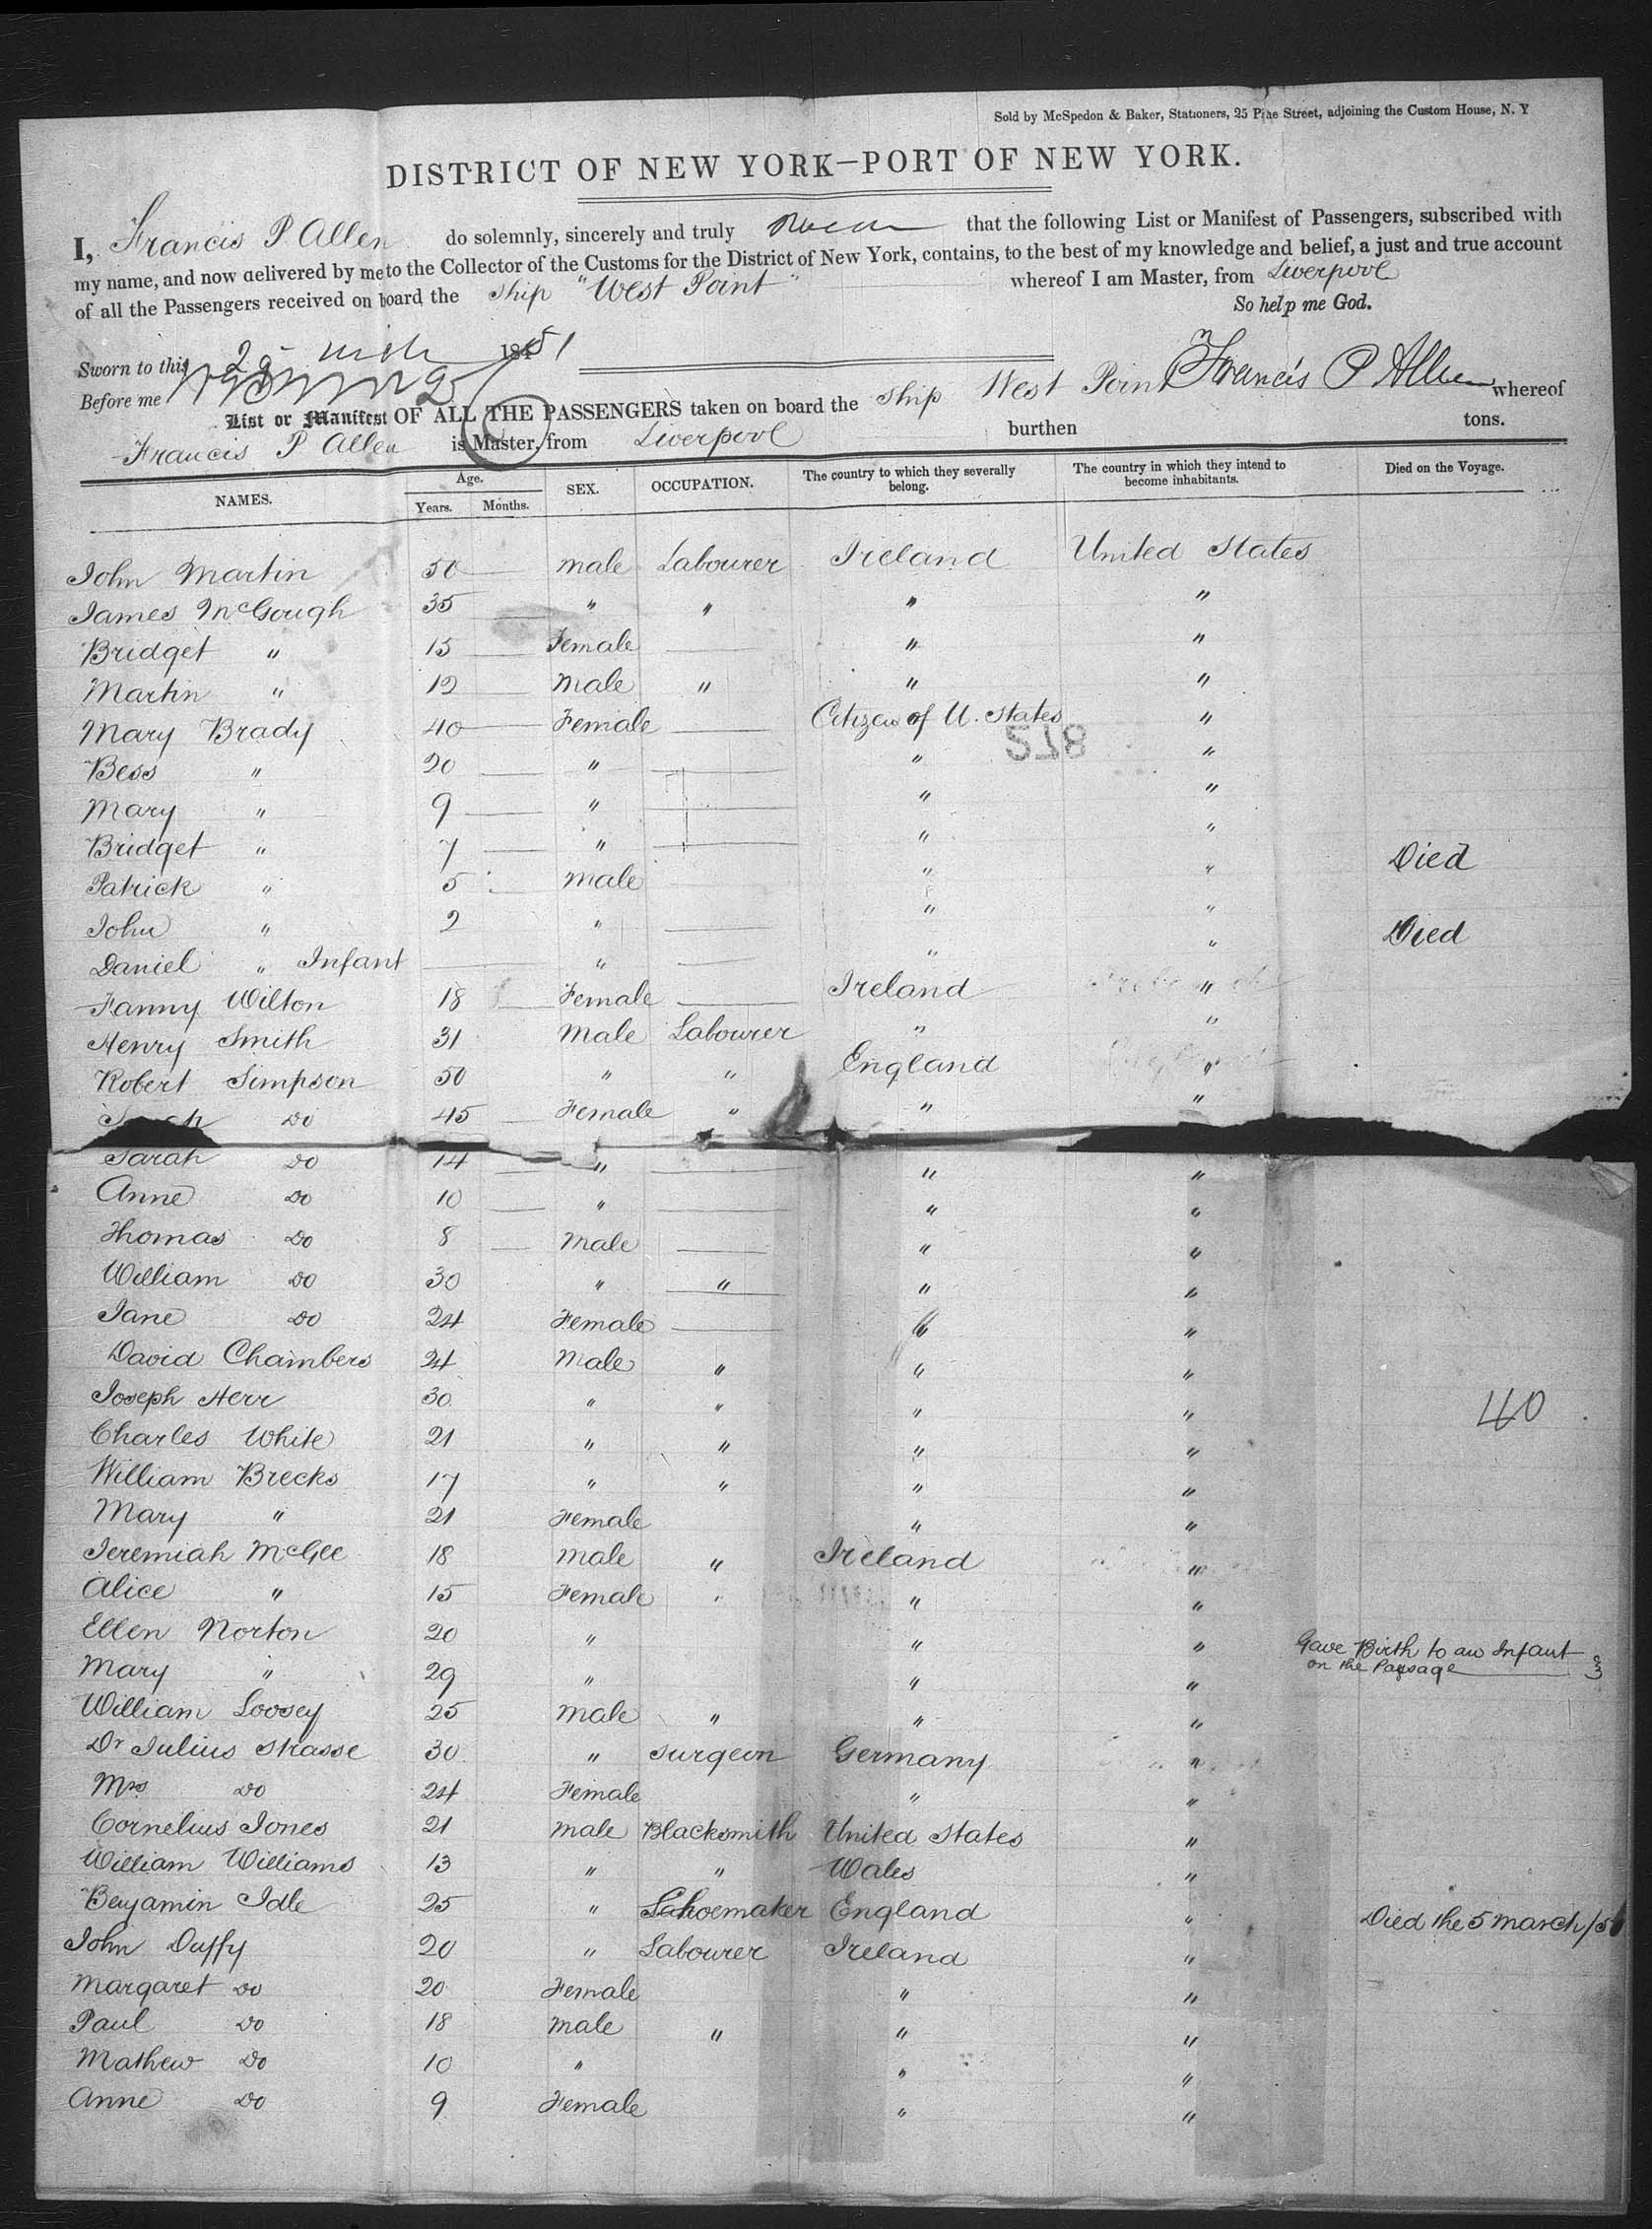 Sold by McSpedon & Baker, Stationers, 25 Pine Street, adjoining the Custom House, N. Y
DISTRICT OF NEW YORK—PORT OF NEW YORK.
I, Francis P Allen do solemnly, sincerely and truly that the following List or Manifest of Passengers, subscribed with
my name, and now delivered by me to the Collector of the Customs for the District of New York, contains, to the best of my knowledge and belief, a just and true account
of all the Passengers received on board the ship "West Point" whereof I am Master, from Liverpool
So help me God.
Sworn to this 1851
Before me Francis P Allen
List or Manifest OF ALL THE PASSENGERS taken on board the ship West Point whereof
Francis P Allen is Master, from Liverpool burthen tons.
NAMES. Age. Years. Months. SEX. OCCUPATION. The country to which they severally belong. The country in which they intend to become inhabitants. Died on the Voyage.
John Martin 50 male Labourer Ireland United States
James McGough 35 " " " "
Bridget " 15 Female " "
Martin " 12 male " " "
Mary Brady 40 Female Citizen of U. States "
872
Bess " 20 " " "
Mary " 9 " " "
Bridget " 7 " " " Died
Patrick " 5 male " "
John " 2 " " " Died
Daniel " Infant " " "
Fanny Wilton 18 Female Ireland "
Henry Smith 31 Male Labourer " "
Robert Simpson 50 " " England "
Do 45 Female " " "
Sarah Do 14 " " "
Anne Do 10 " " "
Thomas Do 8 male " "
William Do 30 " " " "
Jane Do 24 Female " "
David Chambers 24 Male " " "
Joseph Herr 30 " " " "
40
Charles White 21 " " " "
William Brecks 17 " " " "
Mary " 21 Female " "
Jeremiah McGee 18 male " Ireland "
Alice " 15 Female " " "
Ellen Norton 20 " " " Gave Birth to an Infant
on the Passage
Mary " 29 " " "
William Loosey 25 male " " "
Dr Julius Strasse 30 " surgeon Germany "
Mrs Do 24 Female " "
Cornelius Jones 21 male Blacksmith United States "
William Williams 13 " " Wales "
Benjamin Idle 25 " Shoemaker England " Died the 5 march/51
John Duffy 20 " Labourer Ireland "
Margaret Do 20 Female " "
Paul Do 18 male " " "
Mathew Do 10 " " "
Anne Do 9 Female " "